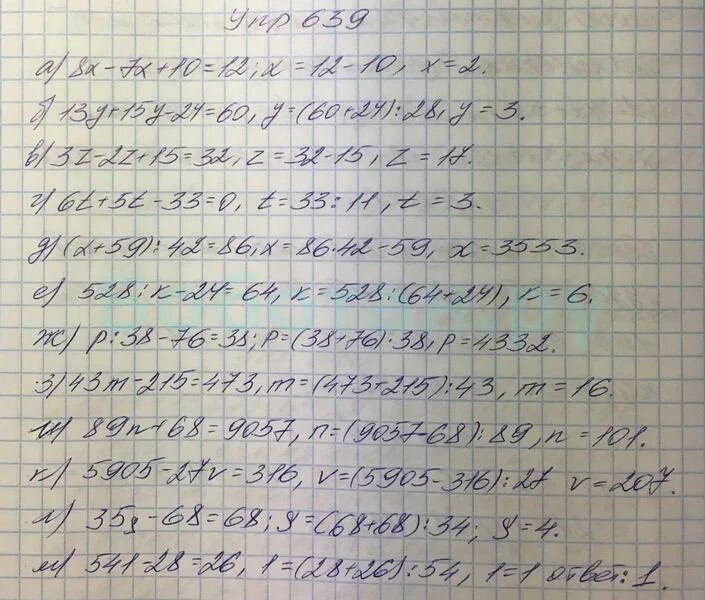 Упр 639
а) 8x-7x+10=12; x=12-10, x=2.
б) 13y+15y-24=60, y=(60+24):28, y=3.
в) 3z-2z+15=32, z=32-15, z=17.
г) 6t+5t-33=0, t=33:11, t=3.
д) (x+59):42=86, x=86·42-59, x=3553.
е) 528:к-24=64, к=528:(64+24), к=6.
ж) p:38-76=38; p=(38+76)·38, p=4332.
з) 43m-215=473, m=(473+215):43, m=16.
и) 89n+68=9057, n=(9057-68):89, n=101.
к) 5905-27v=316, v=(5905-316):27 v=207.
л) 35y-68=68; y=(68+68):34; y=4.
м) 541-28=26, 1=(28+26):54, 1=1 ответ: 1.